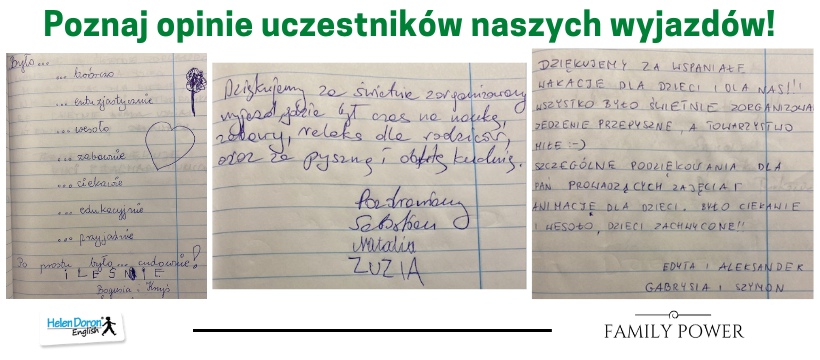 Poznaj opinie uczestników naszych wyjazdów!
Było...
... twórczo
... entuzjastycznie
... wesoło
... zabawnie
... ciekawie
... edukacyjnie
... przyjaźnie
Po prostu było... cudownie!
I LEŚNIE
Bogusia i Krzyś
Dziękujemy za świetnie zorganizowany
wyjazd gdzie był czas na naukę,
zabawy, relaks dla rodziców,
oraz za pyszną i obfitą kuchnię.
Pozdrawiamy
Sebastian
Natalia
ZUZIA
DZIĘKUJEMY ZA WSPANIAŁE
WAKACJE DLA DZIECI I DLA NAS!!
WSZYSTKO BYŁO ŚWIETNIE ZORGANIZOWA
JEDZENIE PRZEPYSZNE, A TOWARZYSTWO
MIŁE :-)
SZCZEGÓLNE PODZIĘKOWANIA DLA
PAŃ PROWADZĄCYCH ZAJĘCIA I
ANIMACJE DLA DZIECI. BYŁO CIEKAWIE
I WESOŁO, DZIECI ZACHWYCONE!!
EDYTA I ALEKSANDER
GABRYSIA I SZYMON
Helen Doron
English
FAMILY POWER